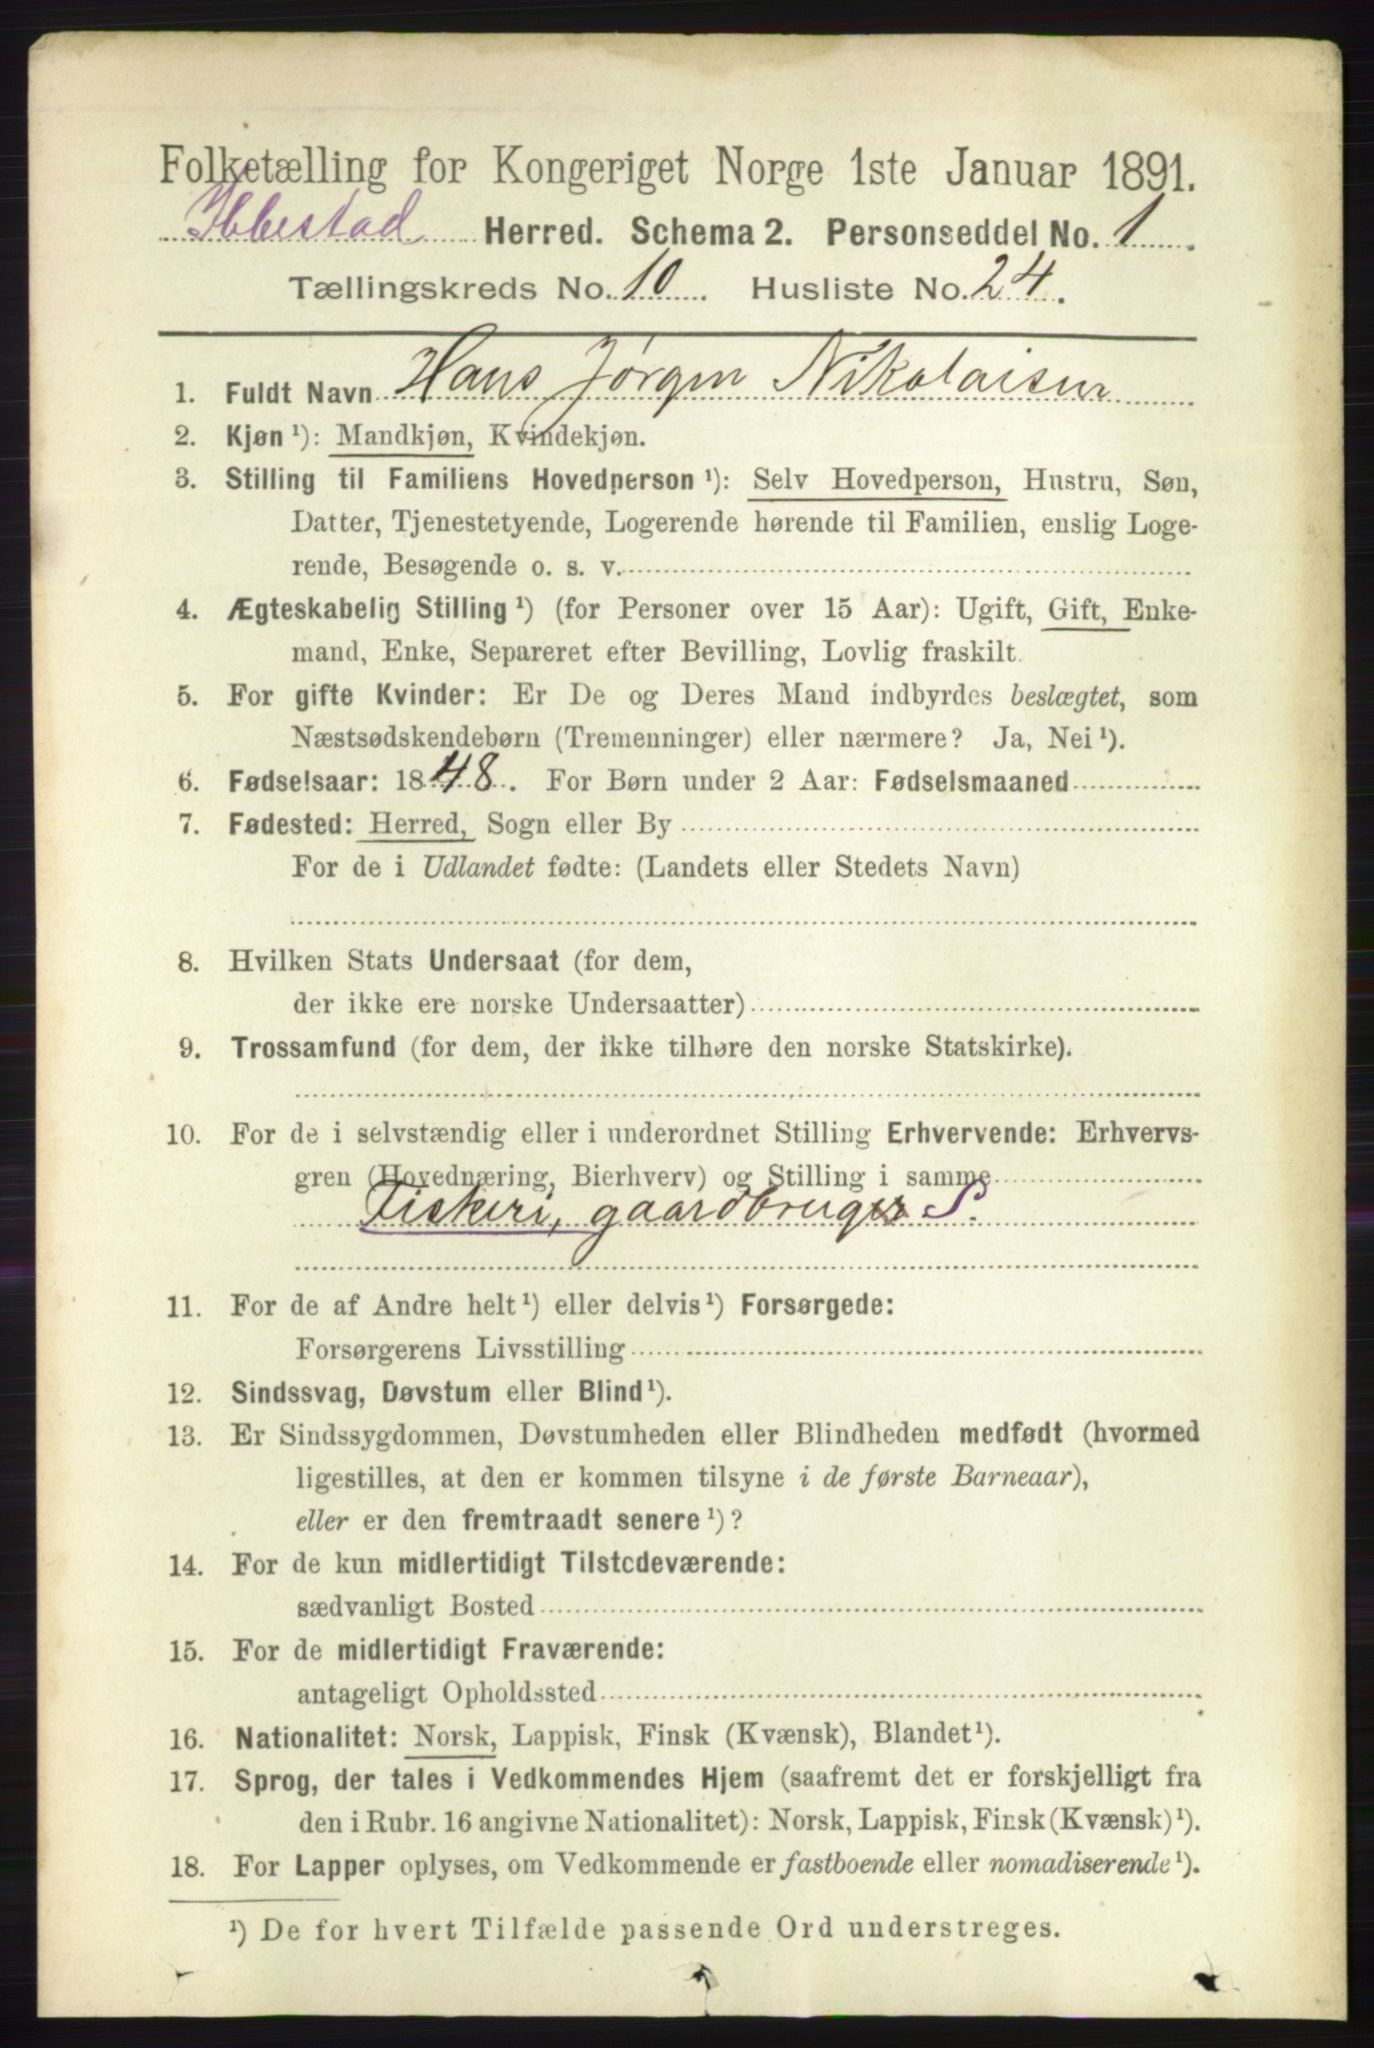 Folketælling for Kongeriget Norge 1ste Januar 1891.
Ibbestad Herred. Schema 2. Personseddel No. 1
Tællingskreds No. 10 Husliste No. 24
1. Fuldt Navn Hans Jørgen Nikolaisen
2. Kjøn ¹): Mandkjøn, Kvindekjøn.
3. Stilling til Familiens Hovedperson ¹): Selv Hovedperson, Hustru, Søn,
Datter, Tjenestetyende, Logerende hørende til Familien, enslig Loge-
rende, Besøgende o. s. v.
4. Ægteskabelig Stilling ¹) (for Personer over 15 Aar): Ugift, Gift, Enke-
mand, Enke, Separeret efter Bevilling, Lovlig fraskilt.
5. For gifte Kvinder: Er De og Deres Mand indbyrdes beslægtet, som
Næstsødskendebørn (Tremenninger) eller nærmere? Ja, Nei ¹).
6. Fødselsaar: 1848. For Børn under 2 Aar: Fødselsmaaned
7. Fødested: Herred, Sogn eller By
For de i Udlandet fødte: (Landets eller Stedets Navn)
8. Hvilken Stats Undersaat (for dem,
der ikke ere norske Undersaatter)
9. Trossamfund (for dem, der ikke tilhøre den norske Statskirke).
10. For de i selvstændig eller i underordnet Stilling Erhvervende: Erhvervs-
gren (Hovednæring, Bierhverv) og Stilling i samme
Fiskeri, gaardbruger S.
11. For de af Andre helt ¹) eller delvis ¹) Forsørgede:
Forsørgerens Livsstilling
12. Sindssvag, Døvstum eller Blind ¹).
13. Er Sindssygdommen, Døvstumheden eller Blindheden medfødt (hvormed
ligestilles, at den er kommen tilsyne i de første Barneaar),
eller er den fremtraadt senere ¹)?
14. For de kun midlertidigt Tilstedeværende:
sædvanligt Bosted
15. For de midlertidigt Fraværende:
antageligt Opholdssted
16. Nationalitet: Norsk, Lappisk, Finsk (Kvænsk), Blandet ¹).
17. Sprog, der tales i Vedkommendes Hjem (saafremt det er forskjelligt fra
den i Rubr. 16 angivne Nationalitet): Norsk, Lappisk, Finsk (Kvænsk) ¹).
18. For Lapper oplyses, om Vedkommende er fastboende eller nomadiserende ¹).
¹) De for hvert Tilfælde passende Ord understreges.